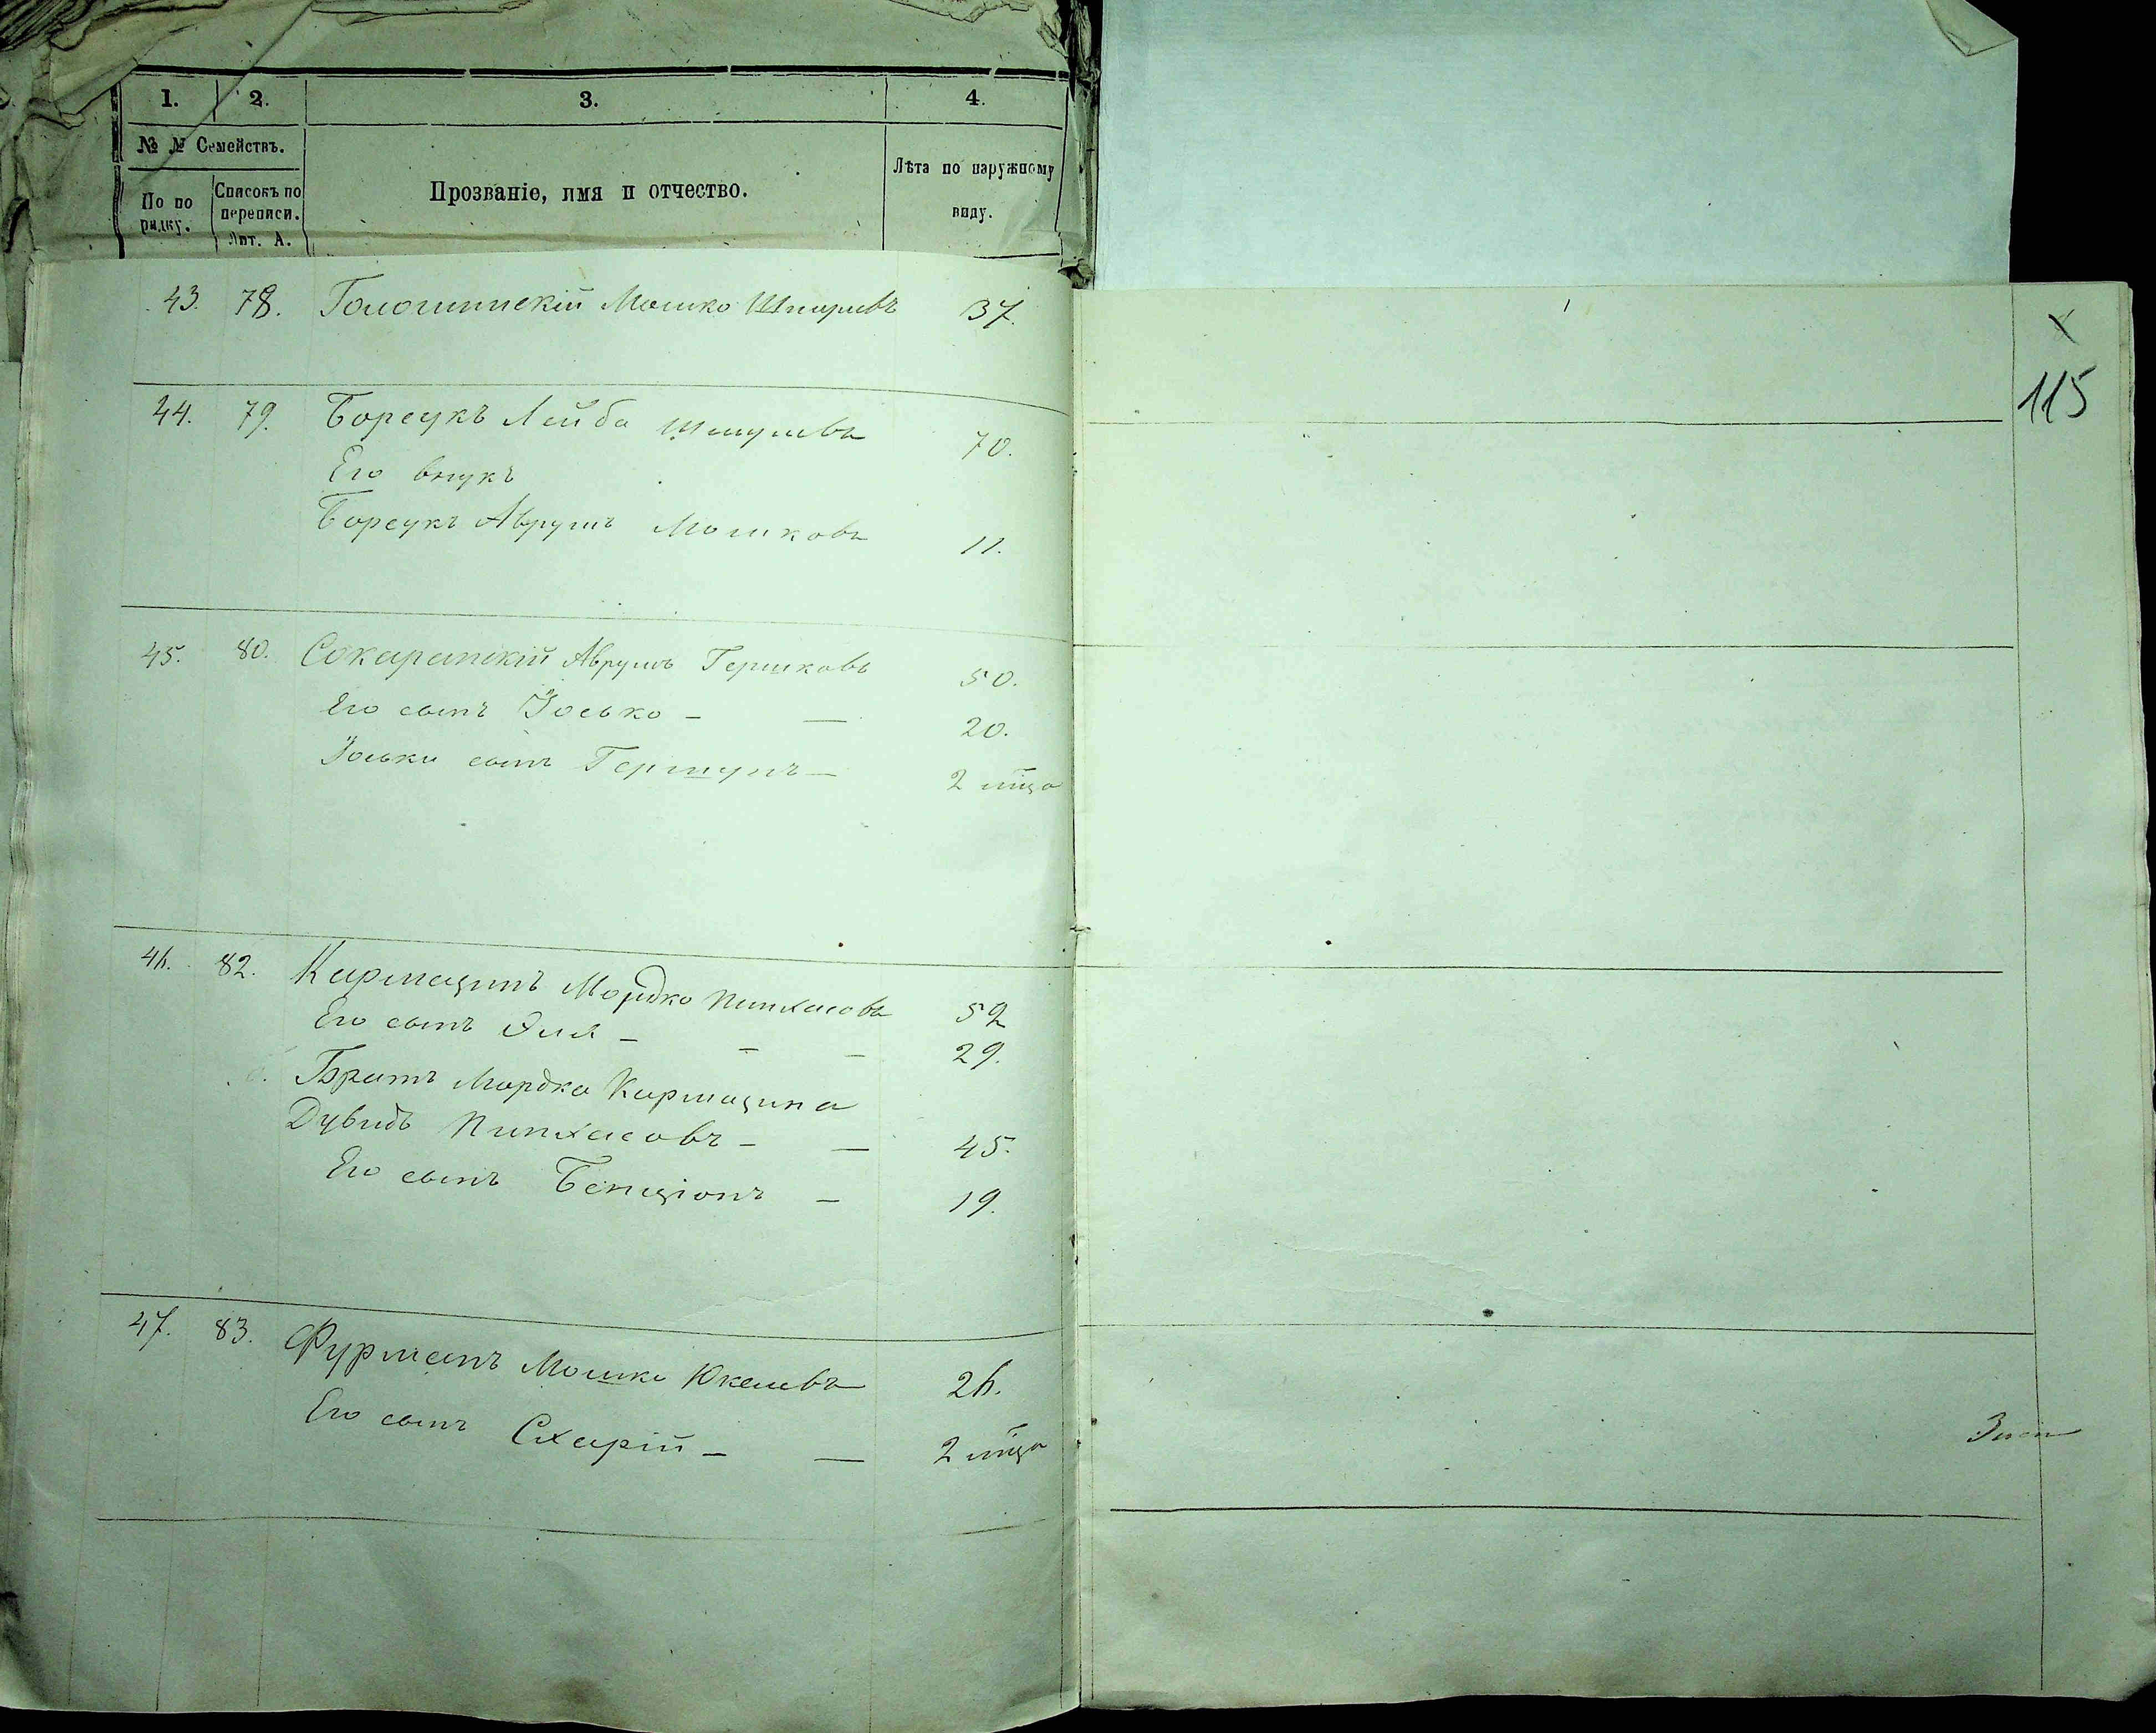 1. 2. 3. 4.
№ № Семействъ.
По по рядку.
Списокъ по переписи. Лит. А.
Прозваніе, имя и отчество.
Лѣта по наружному виду.
43. 78. Мошко 37.
115
44. 79. Борсукъ Лейба Шмулевъ 70.
Его внукъ
Борсукъ Аврумъ Мошковъ 11.
45. 80. Аврумъ Гершковъ 50.
Его сынъ Іосько - — 20.
Іоськи сынъ — 2 мѣсяца
46. 82. Кармазинъ Мордко Пинхасовъ 52
Его сынъ Эля - - - 29.
Братъ Мордка Кармазина
Дувидъ Пинхасовъ - — 45.
Его сынъ Бенціонъ - 19.
47. 83. Фурманъ Мошко Юкелевъ 26.
Его сынъ Схарій - — 2 мѣсяца